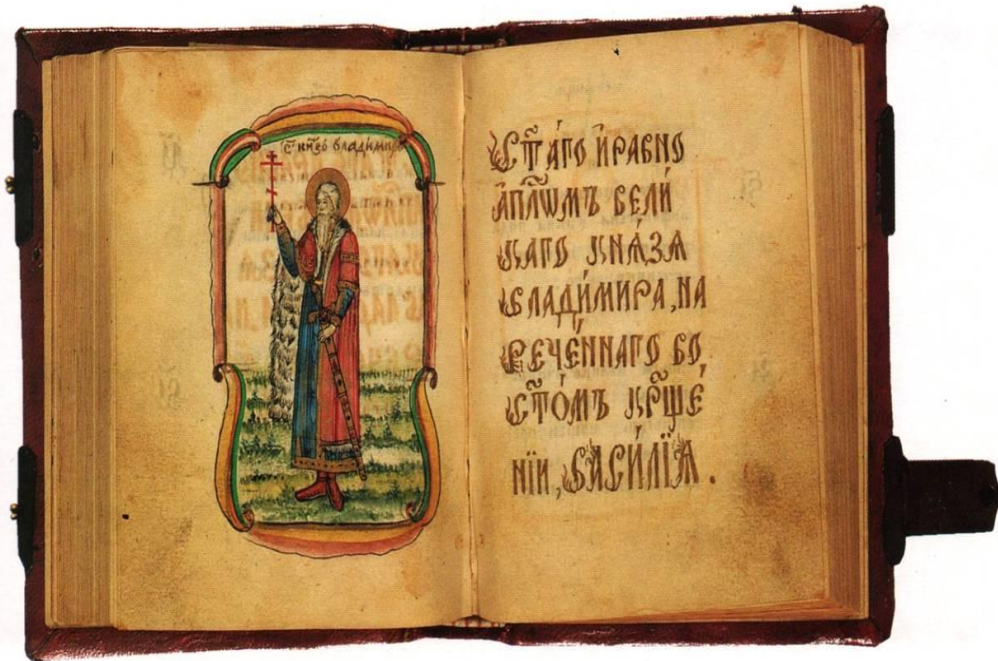 С҃т кн҃зь владимиръ
С҃таго и҆ равно
а҆пⷭ҇лѡмъ вели́
каго кнѧ́зѧ
влади́мира, на
рече́ннаго во
с҃то́мъ кр҃ще́
нїи, васи́лїа .